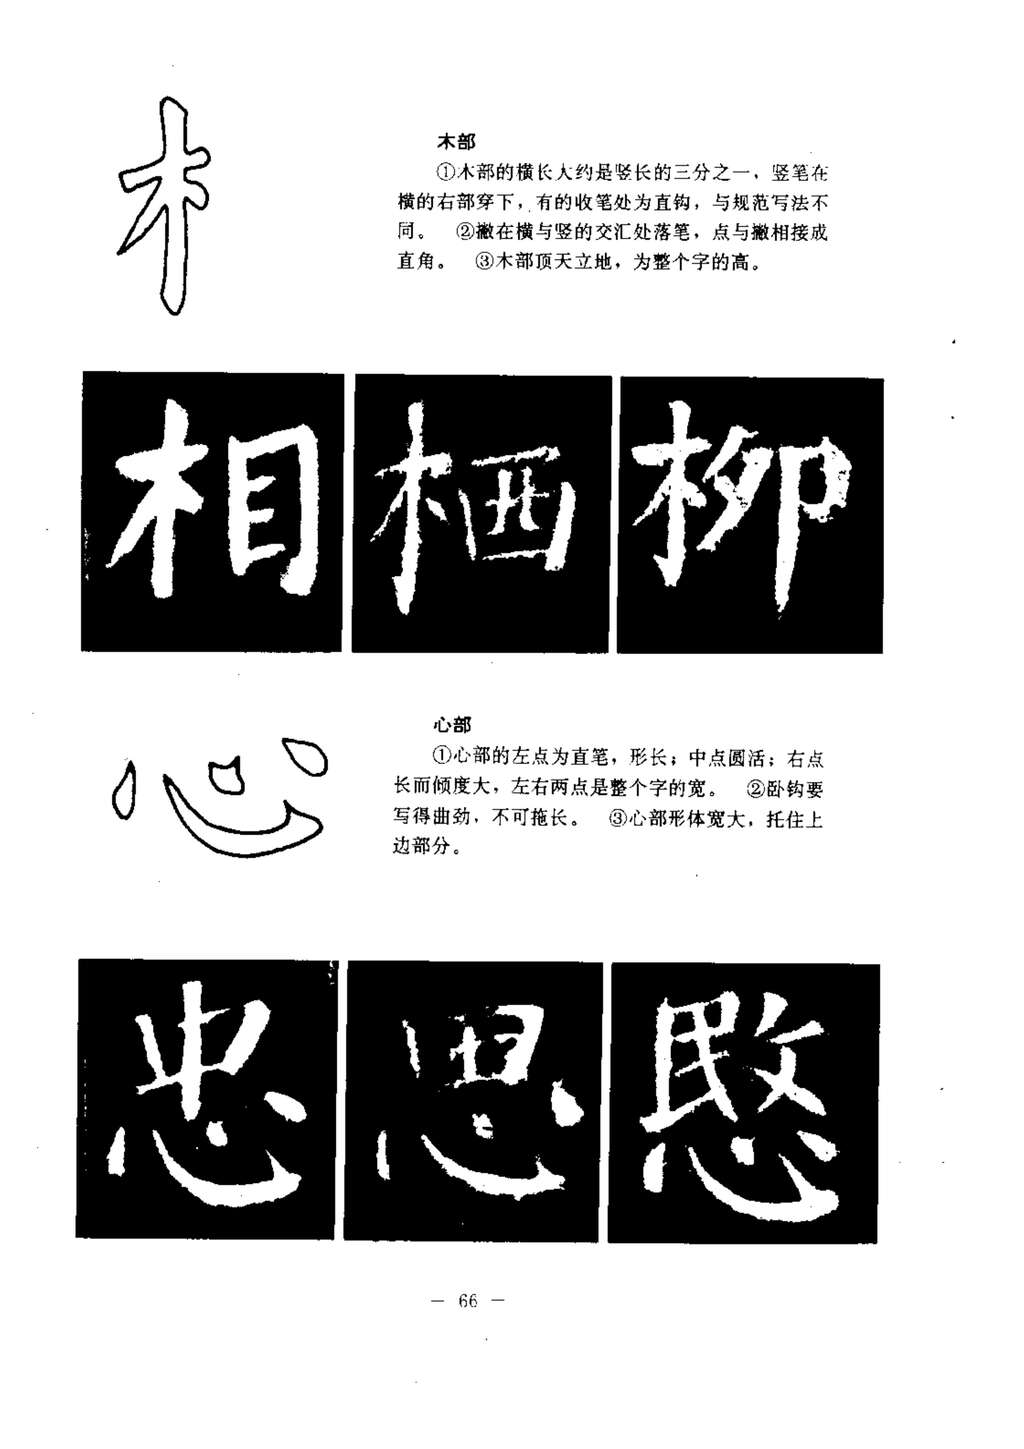 木部
①木部的横长大约是竖长的三分之一，竖笔在
横的右部穿下，有的收笔处为直钩，与规范写法不
同。 ②撇在横与竖的交汇处落笔，点与撇相接成
直角。 ③木部顶天立地，为整个字的高。
相 栖 柳
心部
①心部的左点为直笔，形长；中点圆活；右点
长而倾度大，左右两点是整个字的宽。 ②卧钩要
写得曲劲，不可拖长。 ③心部形体宽大，托住上
边部分。
心
忠 思 愍
— 66 —